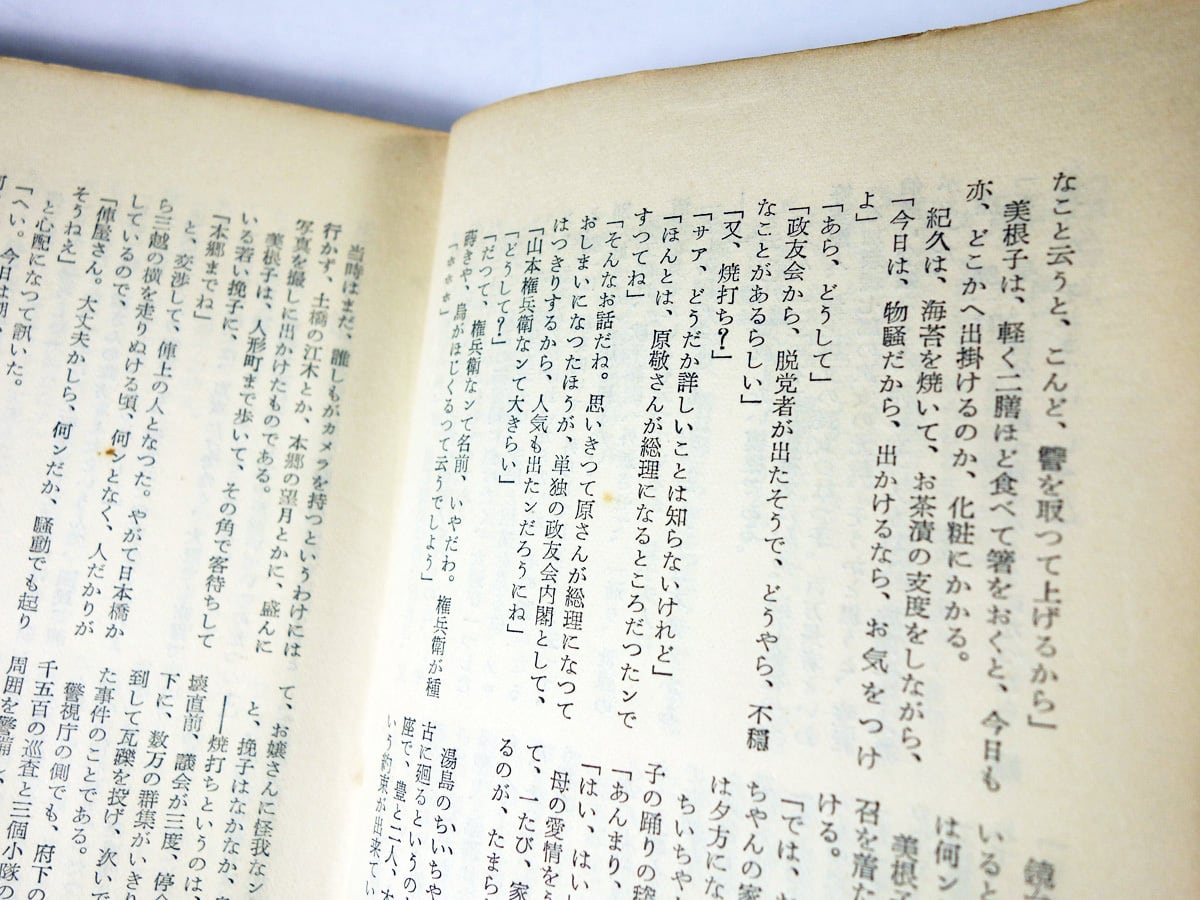 なこと云うと、こんど、讐を取つて上げるから」
美根子は、軽く二膳ほど食べて箸をおくと、今日も
亦、どこかへ出掛けるのか、化粧にかかる。
紀久は、海苔を焼いて、お茶漬の支度をしながら、
「今日は、物騒だから、出かけるなら、お気をつけ
よ」
「あら、どうして」
「政友会から、脱党者が出たそうで、どうやら、不穏
なことがあるらしい」
「又、焼打ち？」
「サア、どうだか詳しいことは知らないけれど」
「ほんとは、原敬さんが総理になるところだつたンで
すつてね」
「そんなお話だね。思いきつて原さんが総理になつて
おしまいになつたほうが、単独の政友会内閣として、
はつきりするから、人気も出たンだろうにね」
「山本権兵衛なンて大きらい」
「どうして？」
「だつて、権兵衛なンて名前、いやだわ。権兵衛が種
蒔きや、烏がほじくるつて云うでしよう」
「ホホホホ」
鏡
いると
は何ン
美根子
召を着た
ける。
「では、
ちやんの家
は夕方にな
ちいちや
子の踊りの
「あんまり、
「はい、はい
母の愛情を
て、一たび、家
るのが、たまら
湯島のちいちや
古に廻るというの
座で、豊と二人、
いう約束が出来てい
当時はまだ、誰しもがカメラを持つというわけには
行かず、土橋の江木とか、本郷の望月とかに、盛んに
写真を撮しに出かけたものである。
美根子は、人形町まで歩いて、その角で客待ちして
いる若い挽子に、
「本郷までね」
と、交渉して、俥上の人となつた。やがて日本橋か
ら三越の横を走りぬける頃、何ンとなく、人だかりが
しているので、
「俥屋さん。大丈夫かしら、何ンだか、騒動でも起り
そうねえ」
と心配になつて訊いた。
「へい。今日は朝、
て、お嬢さんに怪我なン
と、挽子はなかなか、
――焼打ちというのは、
壊直前、議会が三度、停会
下に、数万の群集がいきり
到して瓦礫を投げ、次いで
た事件のことである。
警視庁の側でも、府下の
千五百の巡査と三個小隊の
周囲を警備し、